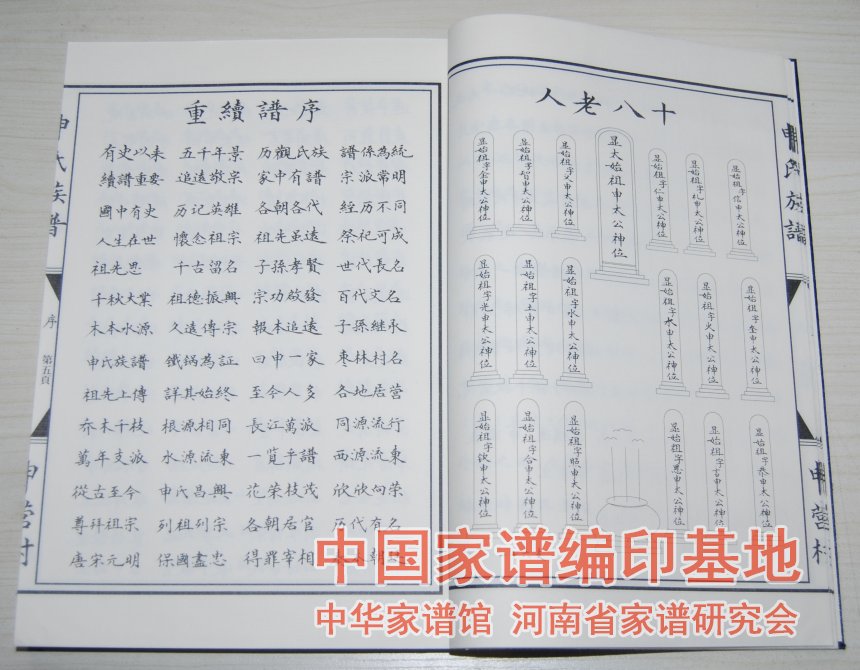 重續譜序
有史以来 五千年景 历觀氏族 譜係為統
續譜重要 追遠敬宗 家中有譜 宗派常明
國中有史 历记英雄 各朝各代 經历不同
人生在世 懷念祖宗 祖先虽遠 祭祀可成
祖先思 千古留名 子孫孝賢 世代長名
千秋大業 祖德振興 宗功啟發 百代文名
木本水源 久遠傳宗 報本追遠 子孫継承
申氏族譜 鐵锅為証 曰申一家 枣林村名
祖先上傳 詳其始終 至今人多 各地居营
乔木千枝 根源相同 長江萬派 同源流行
萬年支派 水源流東 一覧乎譜 西源流東
從古至今 申氏昌興 花荣枝茂 欣欣向荣
尊拜祖宗 列祖列宗 各朝居官 历代有名
唐宋元明 保國盡忠 得罪宰相
申氏族譜
序
第五頁
申营村
十八老人
显始祖字金申太公神位
显始祖字智申太公神位
显始祖字义申太公神位
显太始祖申太公神位
显始祖字仁申太公神位
显始祖字礼申太公神位
显始祖字信申太公神位
显始祖字光申太公神位
显始祖字土申太公神位
显始祖字水申太公神位
显始祖字木申太公神位
显始祖字火申太公神位
显始祖字奎申太公神位
显始祖字钦申太公神位
显始祖字合申太公神位
显始祖字照申太公神位
显始祖字恩申太公神位
显始祖字言申太公神位
显始祖字恭申太公神位
申氏族譜
申营村
中国家谱编印基地
中华家谱馆 河南省家谱研究会